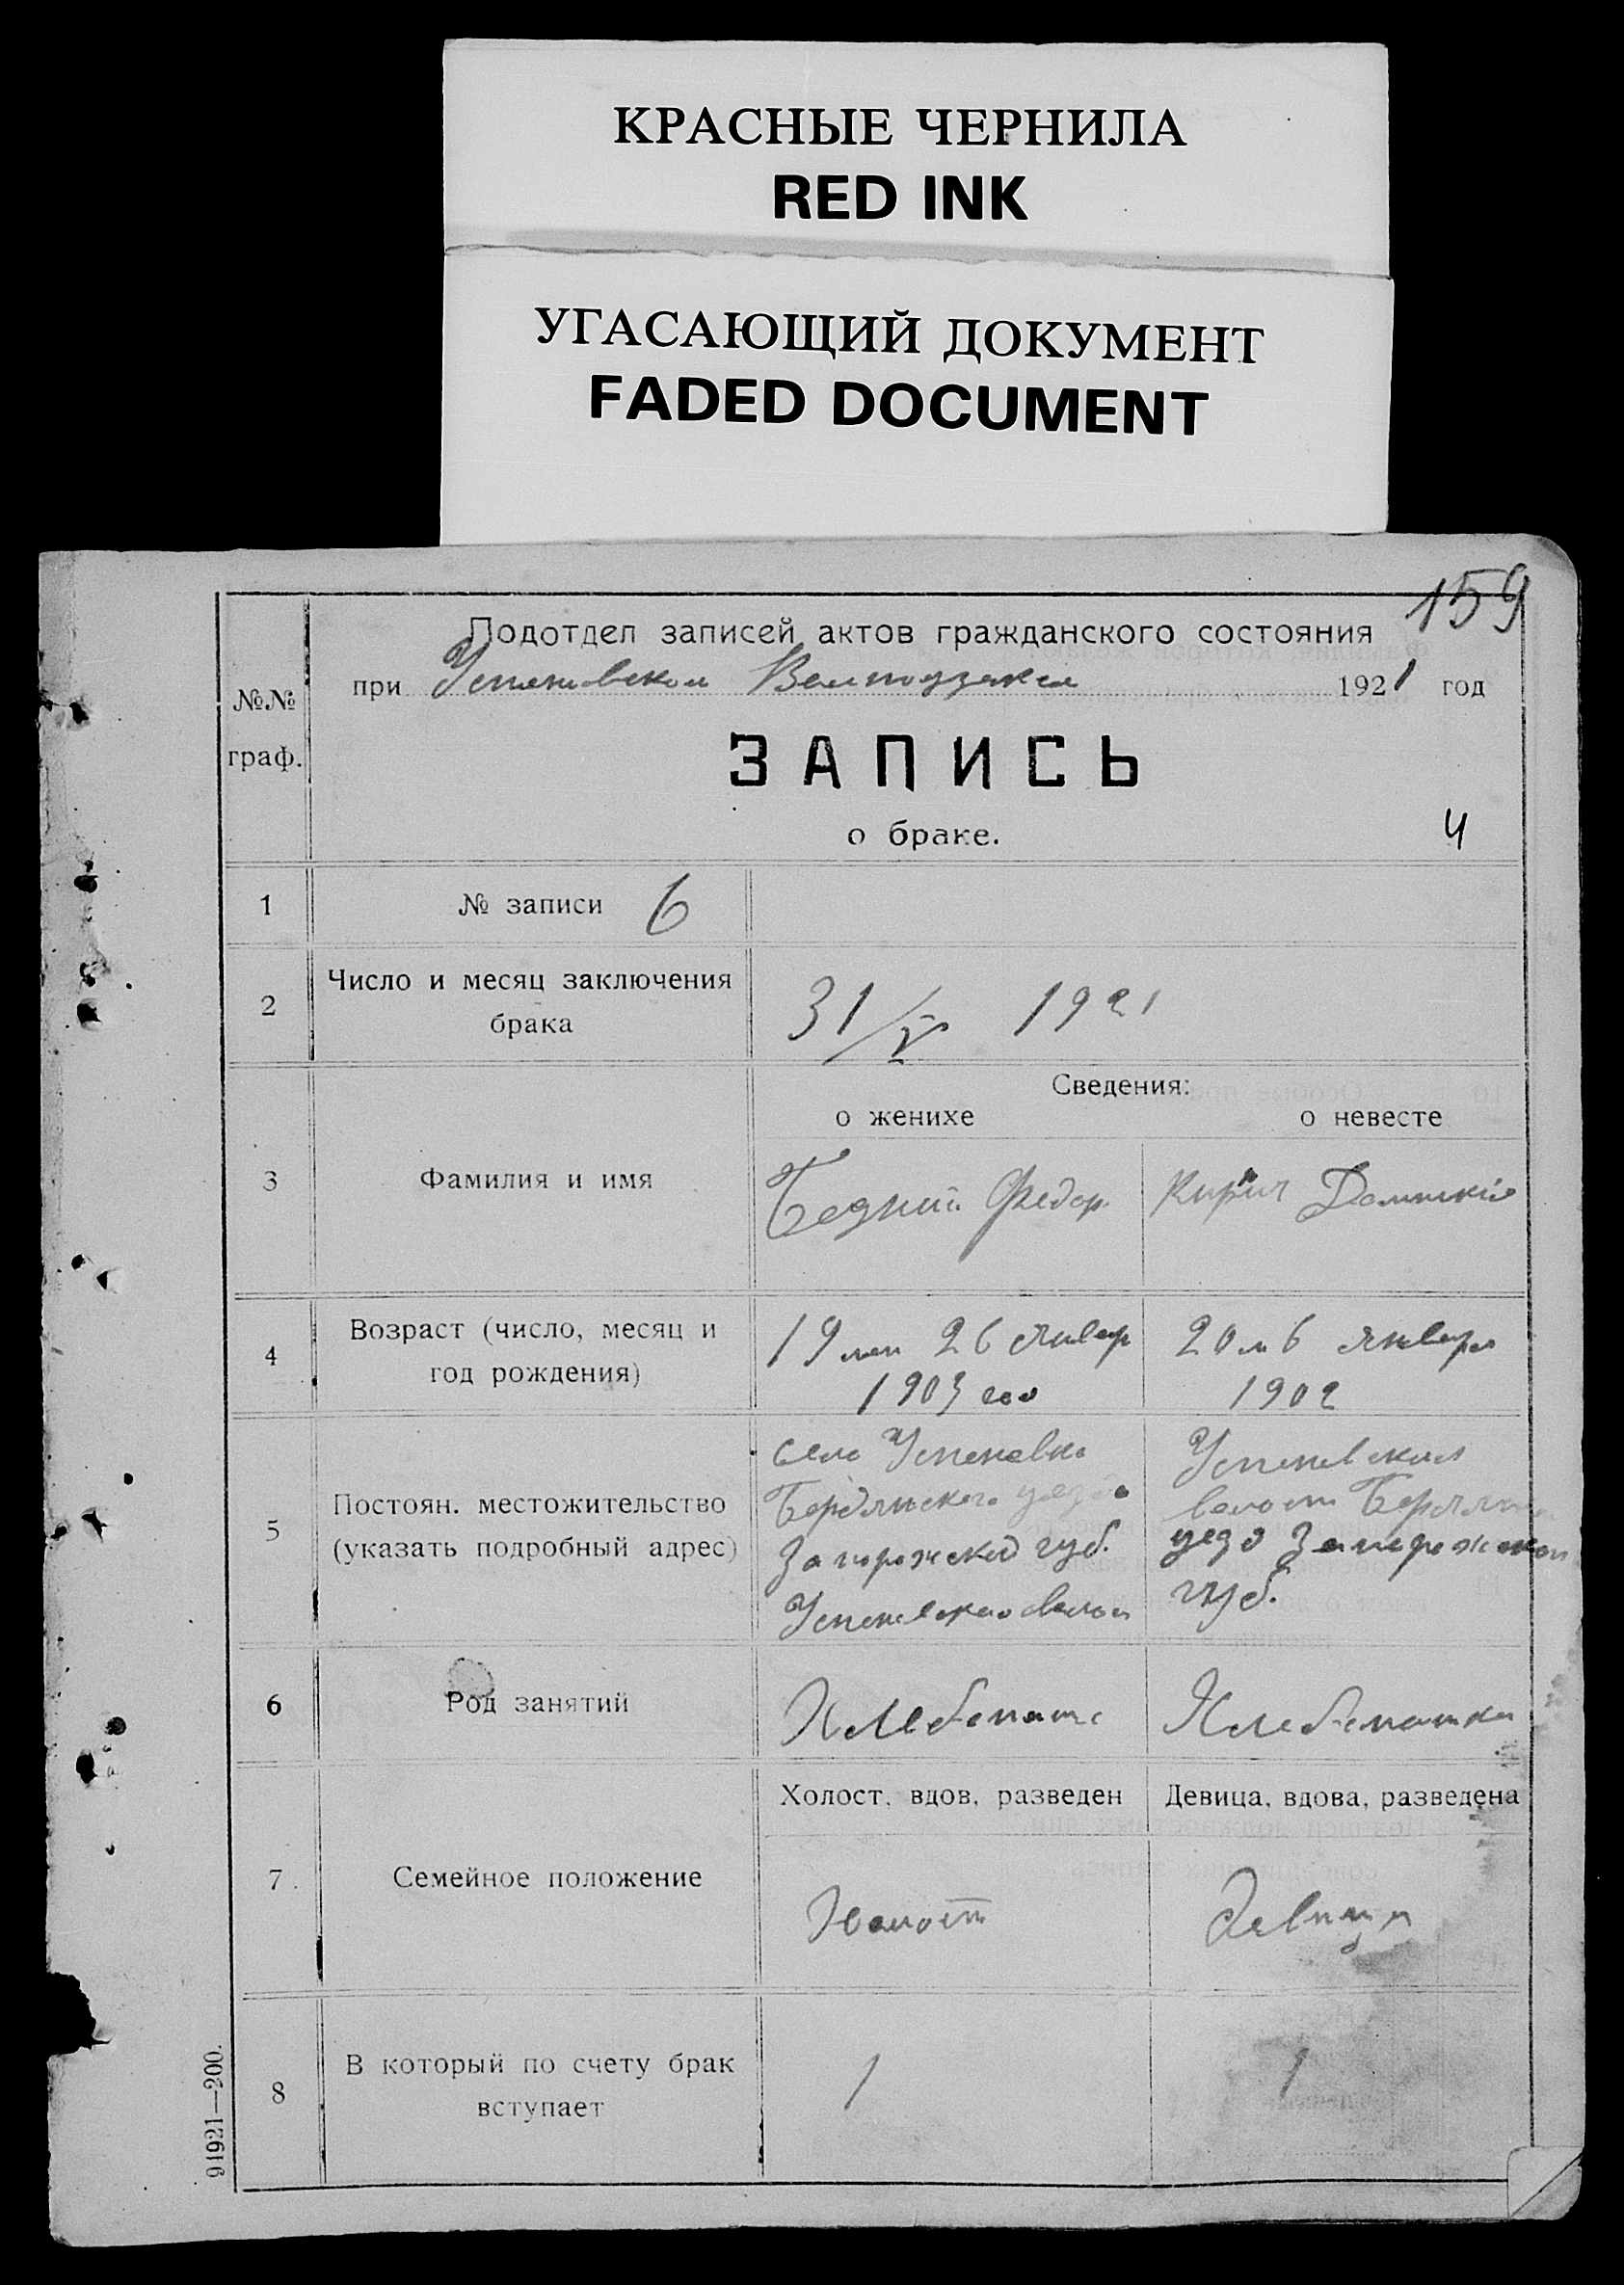 КРАСНЫЕ ЧЕРНИЛА
RED INK
УГАСАЮЩИЙ ДОКУМЕНТ
FADED DOCUMENT
159
Подотдел записей актов гражданского состояния
№№ граф.
при Успеновском 1921 год
ЗАПИСЬ
о браке.
4
1 № записи 6
2 Число и месяц заключения
брака
31/V 1921
Сведения:
о женихе о невесте
3 Фамилия и имя
Бедний Федор
4 Возраст (число, месяц и
год рождения)
19 лет 26 Январ
1903 год
20 л 6 января
1902
5 Постоян. местожительство
(указать подробный адрес)
село Успеневка
Бердянского уезда
Запорожской губ.
Успеневской волос
Успеневская
волост Бердянс
уезд Запорожской
губ.
6 Род занятий
Хлебопаш
Хлебопашка
Холост, вдов, разведен
Девица, вдова, разведена
7. Семейное положение
Холост
Девица
8 В который по счету брак
вступает
1
1
91921—200.